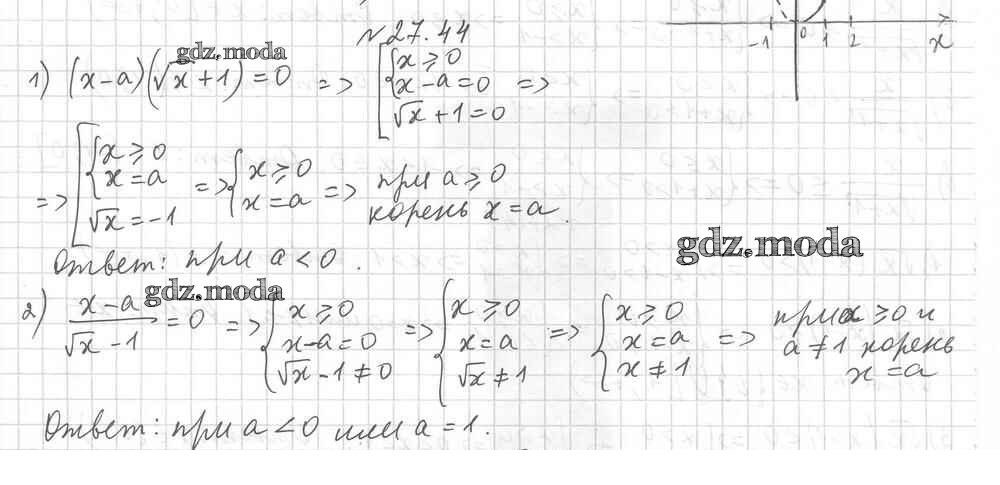 №27.44
gdz.moda
1) (x-a)(√x+1)=0 => [{x⩾0 x-a=0 √x+1=0 =>
=> [{x⩾0 x=a √x=-1 => {x⩾0 x=a => при a⩾0 корень x=a.
gdz.moda
Ответ: при a<0.
gdz.moda
2) x-a/√x-1=0 => {x⩾0 x-a=0 √x-1≠0 => {x⩾0 x=a √x≠1 => {x⩾0 x=a x≠1 => при a⩾0 и a≠1 корень x=a
Ответ: при a<0 или a=1.
-1 0 1 2 x